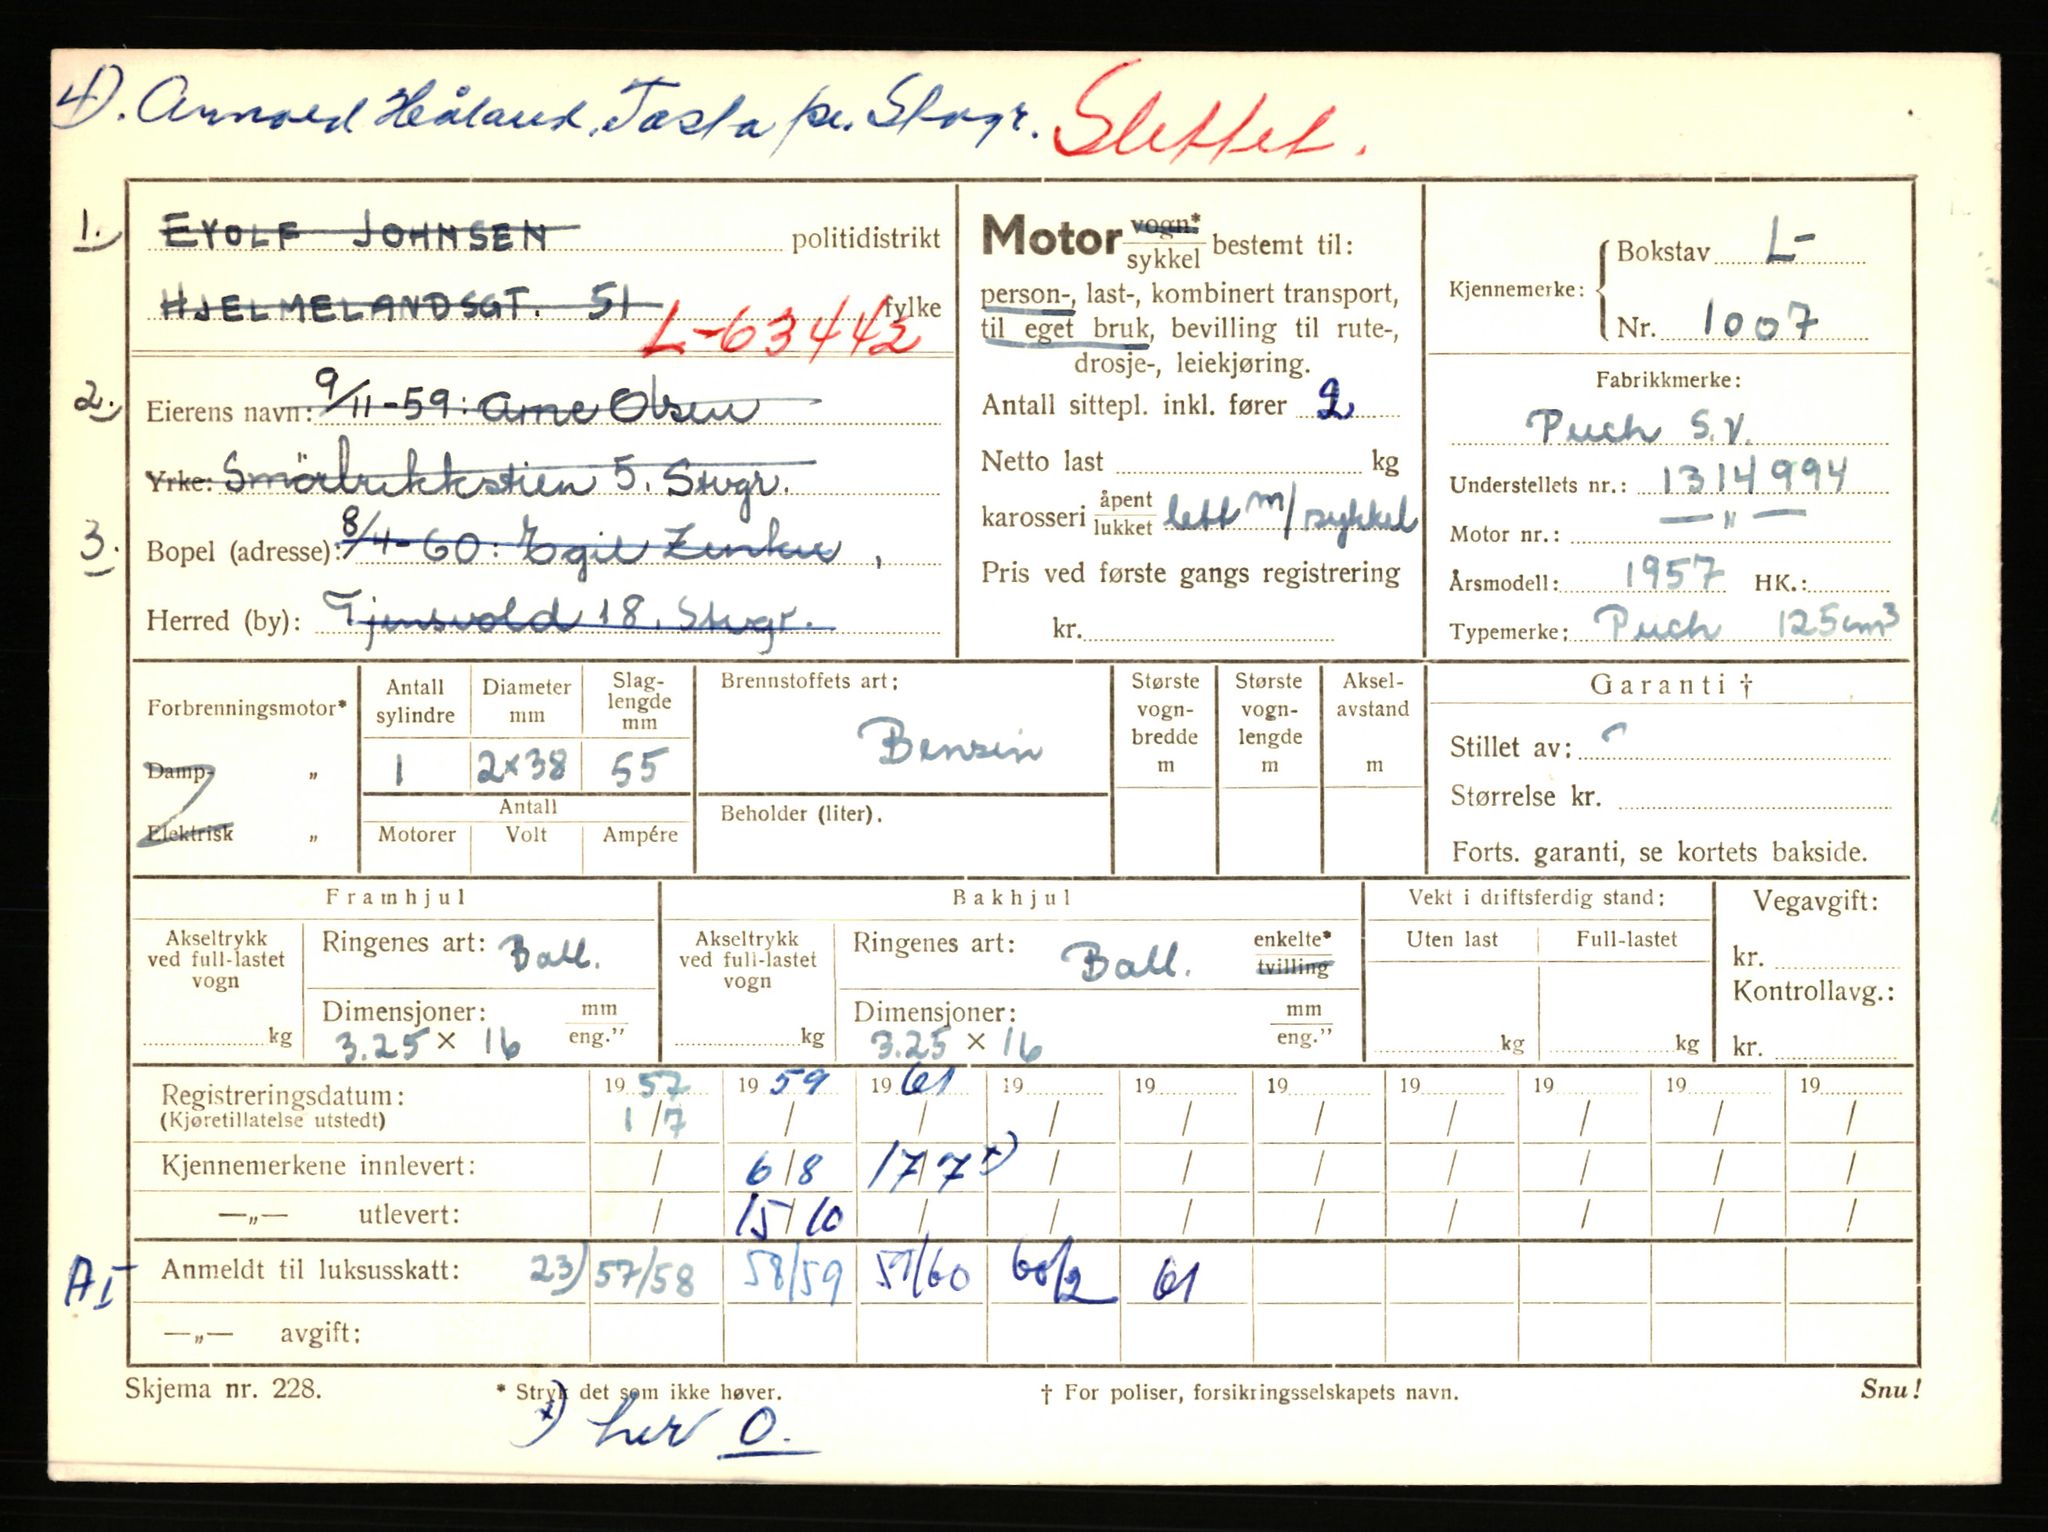 4). Arnold Håland, Tasta pr. Stvgr. Slettet.
1. EYOLF JOHNSEN politidistrikt
HJELMELANDSGT. 51 fylke
L-63442
2. Eierens navn: 9/11-59: Arne Olsen
Yrke: Smörbrekkstien 5. Stvgr.
3. Bopel (adresse): 8/4-60: Egil
Herred (by): Tjensvold 18. Stvgr.
Motor vogn* / sykkel bestemt til:
person-, last-, kombinert transport,
til eget bruk, bevilling til rute-,
drosje-, leiekjøring.
Antall sittepl. inkl. fører 2
Netto last kg
karosseri åpent / lukket lett m/sykkel
Pris ved første gangs registrering
kr.
Kjennemerke: Bokstav L-
Nr. 1007
Fabrikkmerke:
Puch S.V.
Understellets nr.: 1314994
Motor nr.: — " —
Årsmodell: 1957 HK.:
Typemerke: Puch 125cm3
Forbrenningsmotor*
Damp- "
Elektrisk "
Antall sylindre Diameter mm Slag-lengde mm
1 2x38 55
Antall
Motorer Volt Ampére
Brennstoffets art:
Bensin
Beholder (liter).
Største vogn-bredde m
Største vogn-lengde m
Aksel-avstand m
Garanti †
Stillet av:
Størrelse kr.
Forts. garanti, se kortets bakside.
Framhjul
Akseltrykk ved full-lastet vogn kg
Ringenes art: Ball.
Dimensjoner: mm / eng."
3.25 × 16
Bakhjul
Akseltrykk ved full-lastet vogn kg
Ringenes art: Ball. enkelte* / tvilling
Dimensjoner: mm / eng."
3.25 × 16
Vekt i driftsferdig stand:
Uten last Full-lastet
kg kg
Vegavgift:
kr.
Kontrollavg.:
kr.
Registreringsdatum: 19 57 19 59 19 61 19 19 19 19 19 19 19
(Kjøretillatelse utstedt) 1/7 / / / / / / / / /
Kjennemerkene innlevert: / 6/8 17/7 x) / / / / / / /
—„— utlevert: / 15/10 / / / / / / / /
AI Anmeldt til luksusskatt: 23) 57/58 58/59 59/60 60/2 61
—„— avgift:
Skjema nr. 228. * Stryk det som ikke høver. † For poliser, forsikringsselskapets navn. Snu!
x) her 0.